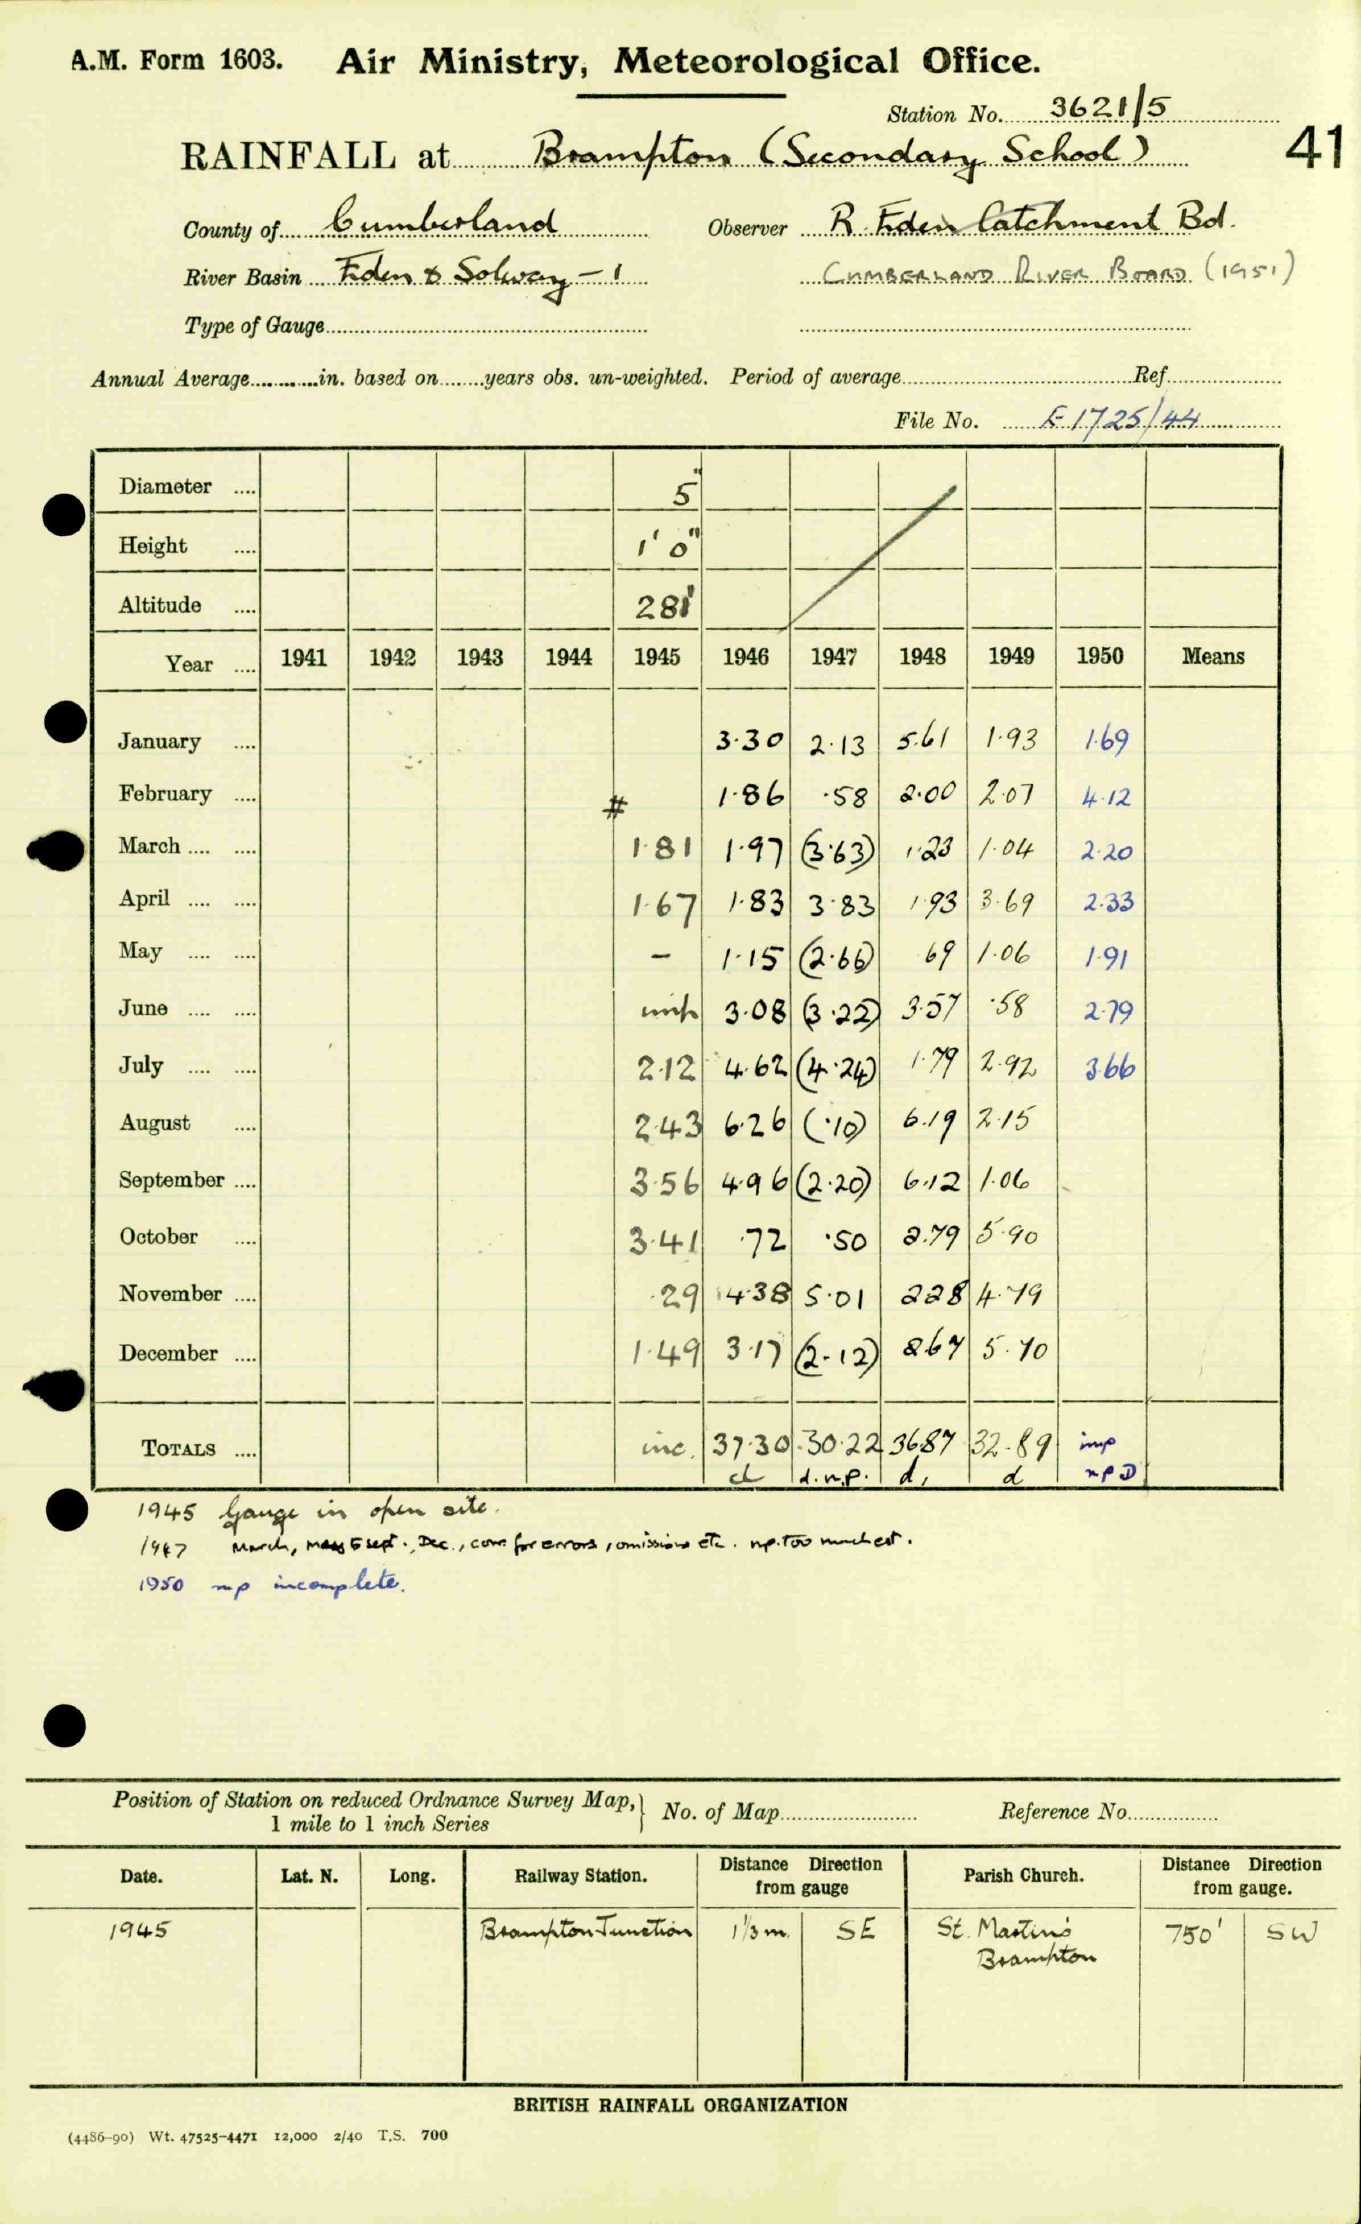 A.M. Form 1603. Air Ministry, Meteorological Office.
Station No. 3621/5
41
RAINFALL at Brampton (Secondary School)
County of Cumberland Observer R. Eden Catchment Bd.
River Basin Eden & Solway - 1 CUMBERLAND RIVER BOARD (1951)
Type of Gauge
Annual Average in. based on years obs. un-weighted. Period of average Ref.
File No. E 1725/44
Diameter 5"
Height 1' 0"
Altitude 281'
Year 1941 1942 1943 1944 1945 1946 1947 1948 1949 1950 Means
January 3.30 2.13 5.61 1.93 1.69
February # 1.86 .58 2.00 2.07 4.12
March 1.81 1.97 (3.63) 1.23 1.04 2.20
April 1.67 1.83 3.83 1.93 3.69 2.33
May – 1.15 (2.66) 69 1.06 1.91
June imp 3.08 (3.22) 3.57 .58 2.79
July 2.12 4.62 (4.24) 1.79 2.92 3.66
August 2.43 6.26 (.10) 6.19 2.15
September 3.56 4.96 (2.20) 6.12 1.06
October 3.41 .72 .50 2.79 5.90
November .29 4.38 5.01 2.28 4.79
December 1.49 3.17 (2.12) 2.67 5.70
TOTALS inc. 37.30 30.22 36.87 32.89 imp
d d.n.p. d. d n p D
1945 Gauge in open site.
1947 March, May to Sept., Dec., corr. for errors, omissions etc. n.p. too much est.
1950 np incomplete.
Position of Station on reduced Ordnance Survey Map, 1 mile to 1 inch Series } No. of Map Reference No.
Date. Lat. N. Long. Railway Station. Distance Direction from gauge Parish Church. Distance Direction from gauge.
1945 Brampton Junction 1⅓ m. SE St. Martin's Brampton 750' SW
BRITISH RAINFALL ORGANIZATION
(4486-90) Wt. 47525-4471 12,000 2/40 T.S. 700